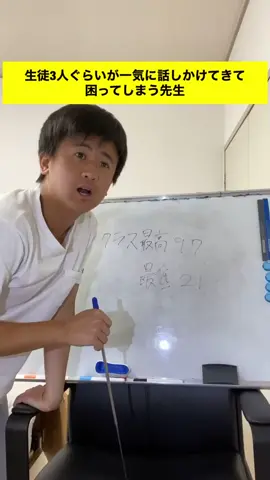 生徒3人ぐらいが一気に話しかけてきて
困ってしまう先生
クラス最高97
最低21